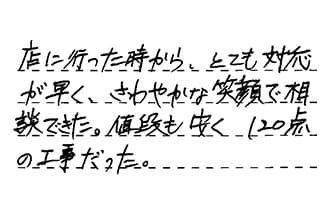 店に行った時から、とても対応
が早く、さわやかな笑顔で相
談できた。値段も安く 120点
の工事だった。